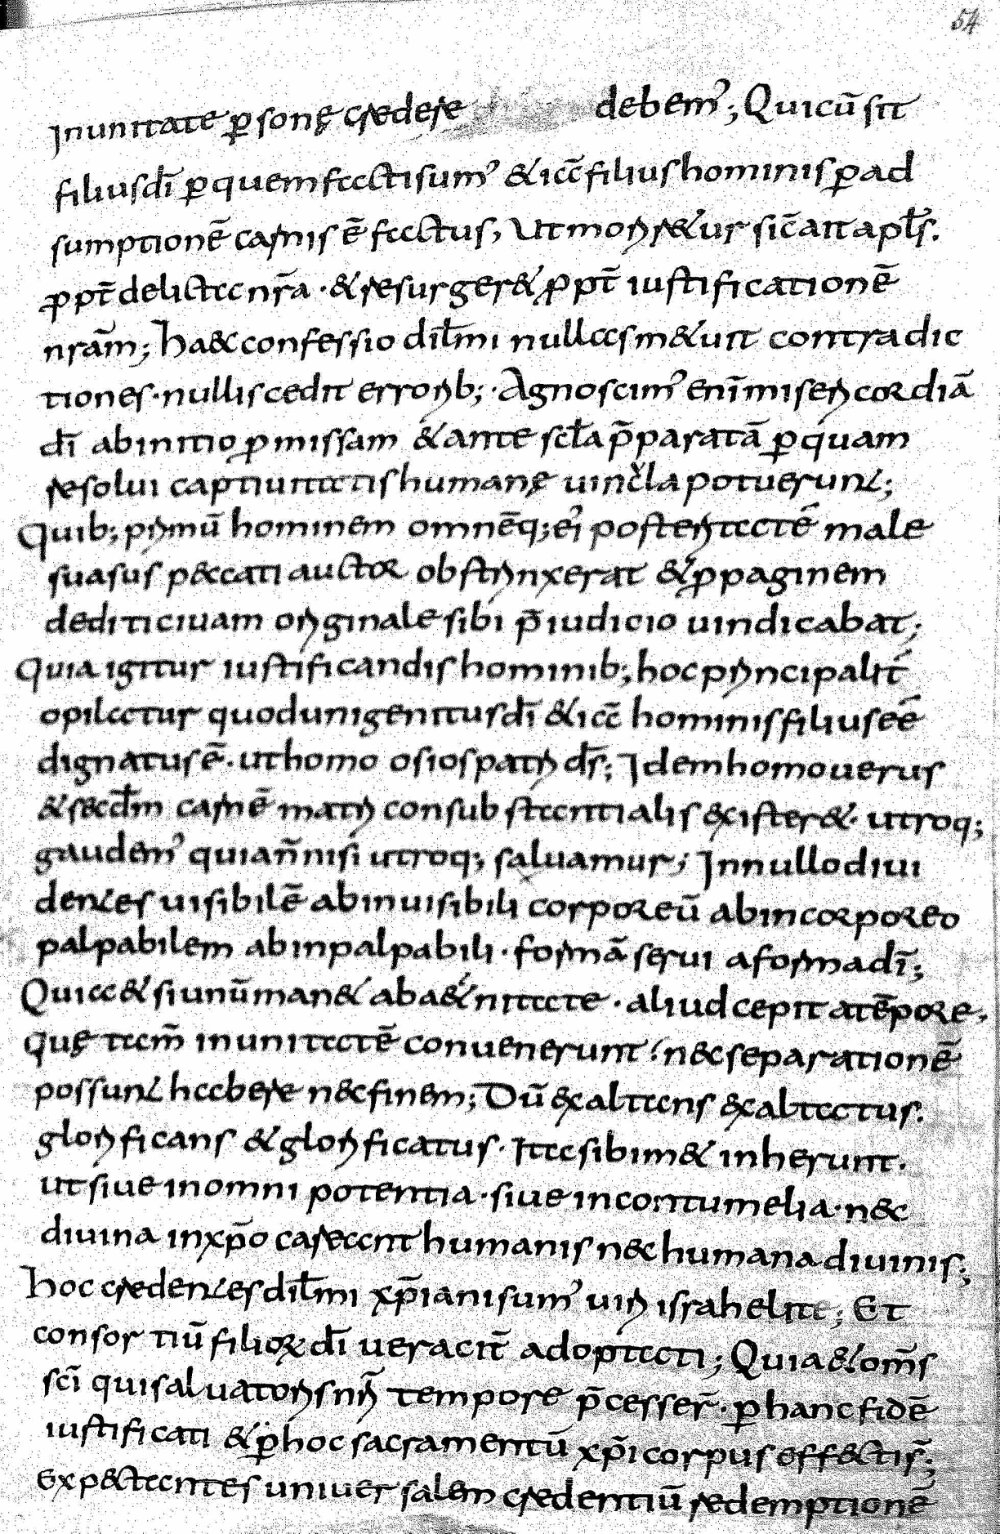 54
Inunitate p̱ sonę credere debem᾽; Quicū sit
filiusdī p̱ quem factisum᾽ & iaē filiushominis p̱ ad
sumptionē carnis ē factus, Ut morir&ur sic̄ ait apl̄s.
ꝓpt̄ delicta nr̄a · & resurger& ꝓpt̄ iustificationē
nrām; ha&c confessio dil̄mi nullasm&uit contradic
tiones · nullis cedit errorib; · Agnoscim᾽ enī misericordiā
dī abinitio ꝓmissam & ante scl̄a p̄paratā p̱ quam
resolui captiuitatis humanę uincl̄a potuerunt;
Quib; primū hominem omnēq; ei᾽ posteritatē male
suasus peccati auctor obstrinxerat & ꝓpaginem
dediticiuam originale sibi p̄iudicio uindicabat;
Quia igitur iustificandis hominib; hoc principalit̄
opilatur quodunigenitusdī &iac̄ hominisfiliuseē
dignatusē · uthomo osiospatri ds̄; Idemhomouerus
& secdm̄ carnē matri consubstantialis exister& · utroq;
gaudem᾽ quian̄nisi utroq; saluamur; Innullodiui
dentes uisibilē abinuisibili corporeū abincorporeo
palpabilem abinpalpabili · formā serui aformadī;
Quia&siunūman& aba&nitate · aliud cepit atēpore,
quę tam̄ inunitatē conuenerunt · necseparationē
possunt habere necfinem; Dū exaltans exaltatus.
glorificans & glorificatus · Itasibim& inherunt.
utsiue inomni potentia · siue incontumelia · nec
diuina inxp̄o careant humanis nechumana diuinis;
hoc credentes dil̄mi xp̄ianisum᾽ uiri israhelite; Et
consortiū filioꝝ dī ueracit̄ adoptati; Quia&om̄s
scī quisaluatoris nr̄i tempore p̄cesser̄ · p̱ hanc fidē
iustificati & p̱ hoc sacramentū xp̄i corpus effectis̄;
Expectantes uniuersalem credentiū redemptionē